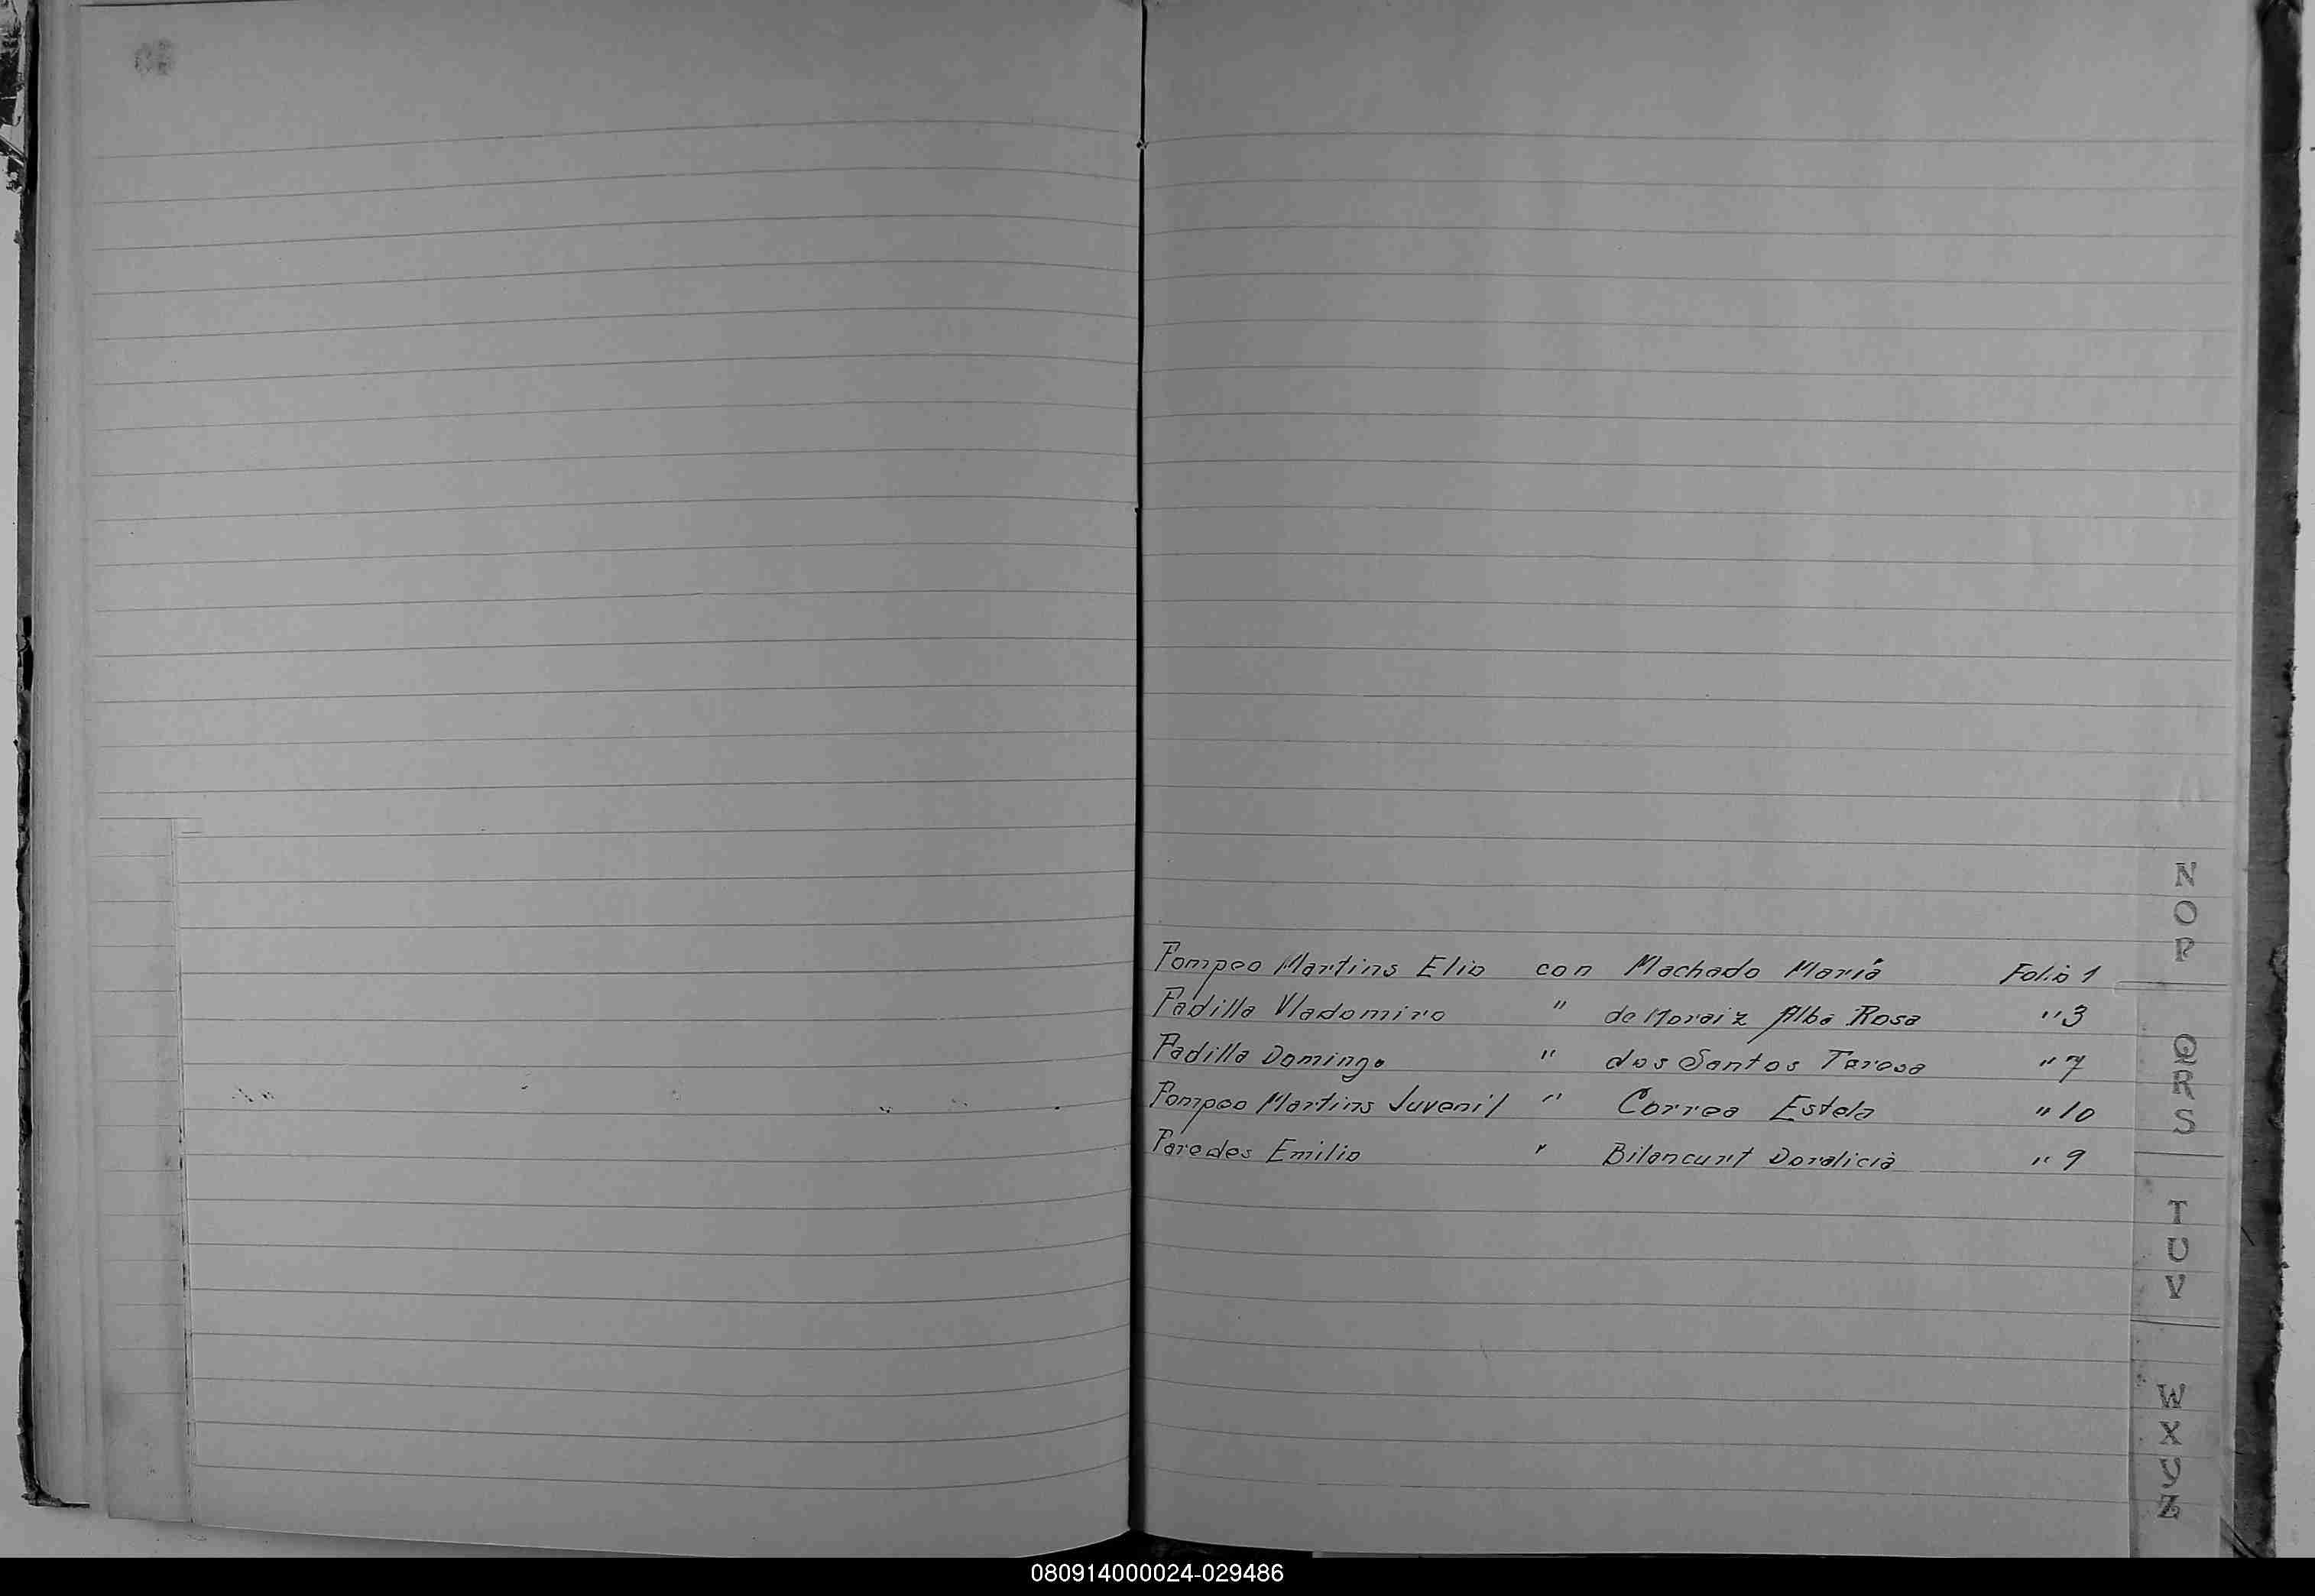 N
O
P
Pompeo Martins Elio con Machado María Folio 1
Padilla Vladomiro " de Moraiz Alba Rosa " 3
Padilla Domingo " dos Santos Teresa " 7
Pompeo Martins Juvenil " Correa Estela " 10
Paredes Emilio " Bitancurt Doralicia " 9
Q
R
S
T
U
V
W
X
Y
Z
080914000024-029486